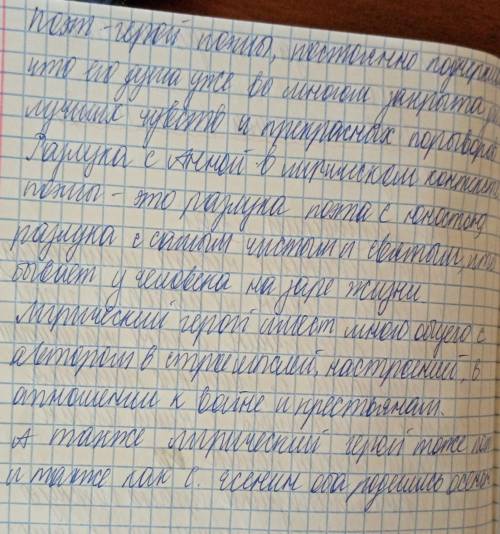 поэт-герой поэмы, постоянно подчерки
что его душа уже во многом закрыта для
лучших чувств и прекрасных порывов.
Разлука с Анной в лирическом контексте
поэмы - это разлука поэта с юностью,
разлука с самым чистым и святым, что
бывает у человека на заре жизни.
Лирический герой имеет много общего с
автором в строе мыслей, настроений, в
отношении к войне и крестьянам.
А также лирический герой тоже поэт
и также как С. Есенин оба родились осенью